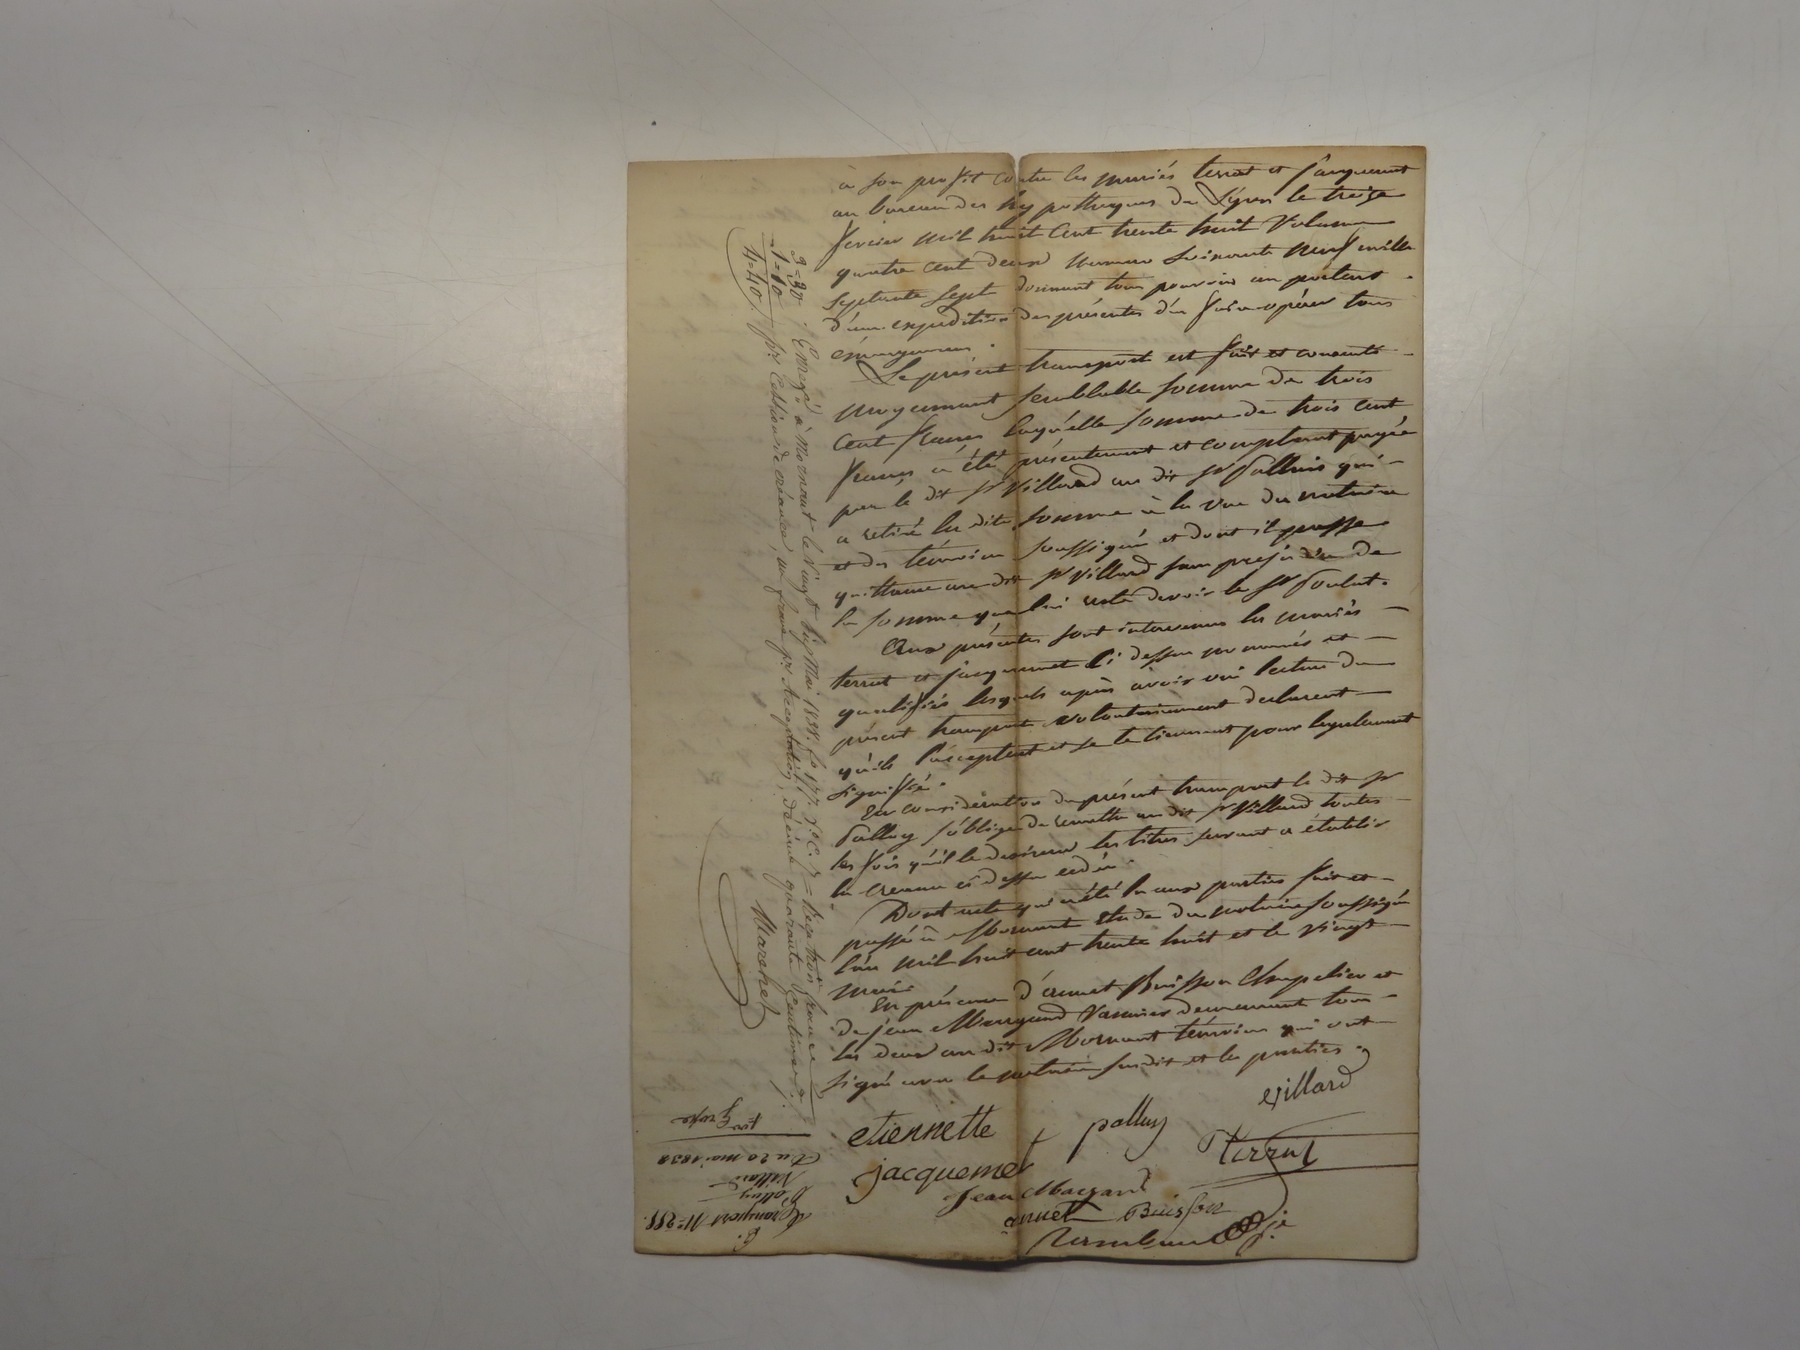 à son profit contre les mariés terrat et jacquemet
au bureau des hypothèques de Lyon le treize
fevrier mil huit cent trente huit Volume
quatre cent deux numero soixante neuf mille
septante sept donnant tous pouvoirs au porteur
d'une expedition des présentes d'en faire opérer tous
émargemens.
Le présent transport est fait et consenti
moyennant semblable somme de trois
cent francs laquelle somme de trois cent
francs a été présentement et comptant payée
par le dit Sr Villard au dit Sr palluis qui
a retiré la dite somme à la vue du notaire
et des témoins soussignés et dont il passe
quittance au dit Sr Villard sans prejudice de
la somme que lui reste devoir le Sr
Aux présentes sont intervenus les mariés
terrat et jacquemet ci dessus nommés et
qualifiés lesquels après avoir oui lecture du
présent transport volontairement declarent
qu'ils l'acceptent et se le tiennent pour legalement
signifié.
En considération du présent transport le dit Sr
palluy s'oblige de remettre au dit Sr Villard toutes
les fois qu'il le desirera les titres servant a établir
la creance ci dessus cédée.
Dont acte qui a été lu aux parties fait et
passé à Mornant étude du notaire soussigné
l'an mil huit cent trente huit et le vingt
mai.
En présence d'annet Buisson Chapelier et
de jean Margand demeurant tous
les deux au dit Mornant témoins qui ont
signé avec le notaire susdit et les parties.
villard
etiennette palluy
jacquemet Terrat
jean Margand
annet Buisson
3=30
1=10
4=40
Enregé à Mornant le vingt six Mai 1838. fo 177. Vo C. 7 = Reçu trois francs
pr Cession de créance, un franc pr Acceptation, décime quarante Centimes.
Marchet
C.
Transport No 288.
Palluy
Villard
Du 20 mai 1838
fre grosse